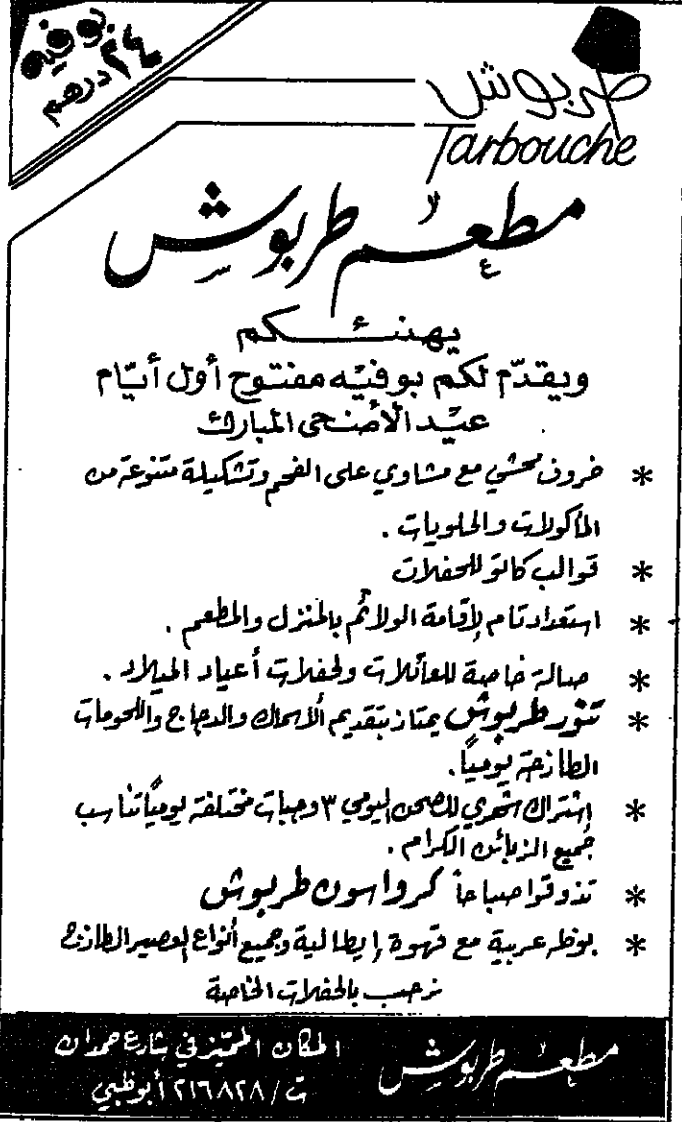 بوفيه
٢٤ درهم
طربوش
Tarbouche
مطعم طربوش
يهنئكم
ويقدّم لكم بوفيه مفتوح أول أيّام
عيد الأضحى المبارك
* خروف محشي مع مشاوي على الفحم وتشكيلة متنوعة من
المأكولات والحلويات .
* قوالب كاتو للحفلات
* استعداد تام لإقامة الولائم بالمنزل والمطعم .
* صالة خاصة للعائلات ولحفلات أعياد الميلاد .
* تنور طربوش يمتاز بتقديم الأسماك والدجاج واللحومات
الطازجة يومياً .
* إشتراك شهري للصحن اليومي ٣ وجبات مختلفة يومياً تناسب
جميع الزبائن الكرام .
* تذوقوا صباحاً كرواسون طربوش
* بوظه عربية مع قهوة إيطالية وجميع أنواع العصير الطازج
نرحب بالحفلات الخاصة
مطعم طربوش
المكان المميّز في شارع حمدان
ت / ٢١٦٨٢٨ أبوظبي